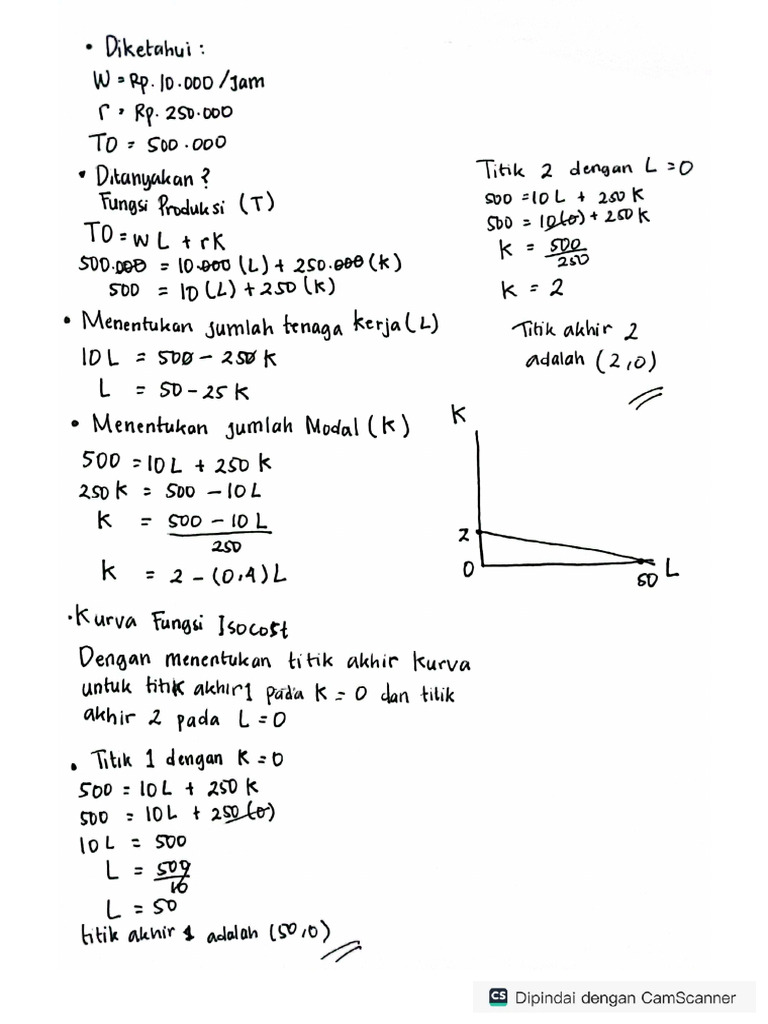 • Diketahui :
W = Rp. 10.000 /Jam
r = Rp. 250.000
TO = 500.000
• Ditanyakan ?
Fungsi Produksi (T)
TO = w L + rK
500.000 = 10.000 (L) + 250.000 (k)
500 = 10 (L) + 250 (k)
• Menentukan jumlah tenaga kerja (L)
10 L = 500 - 250 k
L = 50 - 25 k
• Menentukan jumlah Modal (k)
500 = 10 L + 250 k
250 k = 500 - 10 L
k = 500 - 10 L
250
k = 2 - (0,4) L
• Kurva Fungsi Isocost
Dengan menentukan titik akhir kurva
untuk titik akhir 1 pada K = 0 dan titik
akhir 2 pada L = 0
• Titik 1 dengan K = 0
500 = 10 L + 250 k
500 = 10 L + 250 (0)
10 L = 500
L = 500
10
L = 50
titik akhir 1 adalah (50,0)
Titik 2 dengan L = 0
500 = 10 L + 250 K
500 = 10 (0) + 250 K
k = 500
250
k = 2
Titik akhir 2
adalah (2,0)
K
2
0
50
L
CS Dipindai dengan CamScanner